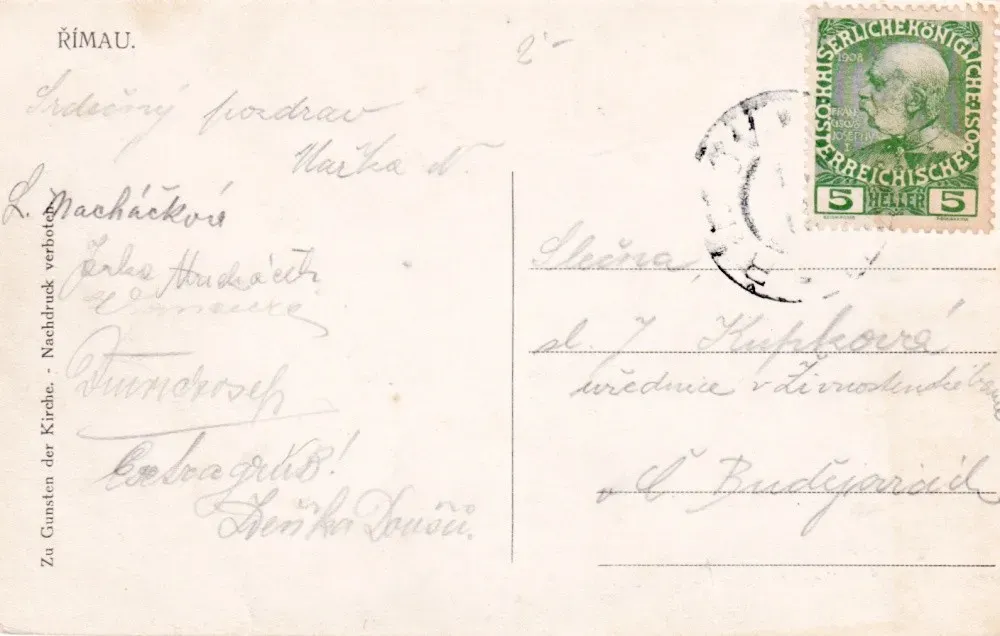 ŘÍMAU.
2-
Srdečný pozdrav
Mařka N.
L. Macháčková
Jarka
Extragruß!
Zdeňka Doušů.
Zu Gunsten der Kirche. - Nachdruck verboten
KAISERLICHE KÖNIGLICHE
ÖSTERREICHISCHE POST
1908
FRANCISCVS
JOSEPH
I
5 HELLER 5
Slečna,
sl. J Kupková
uřednice v Živnostenské bance
v Č Budějovicích